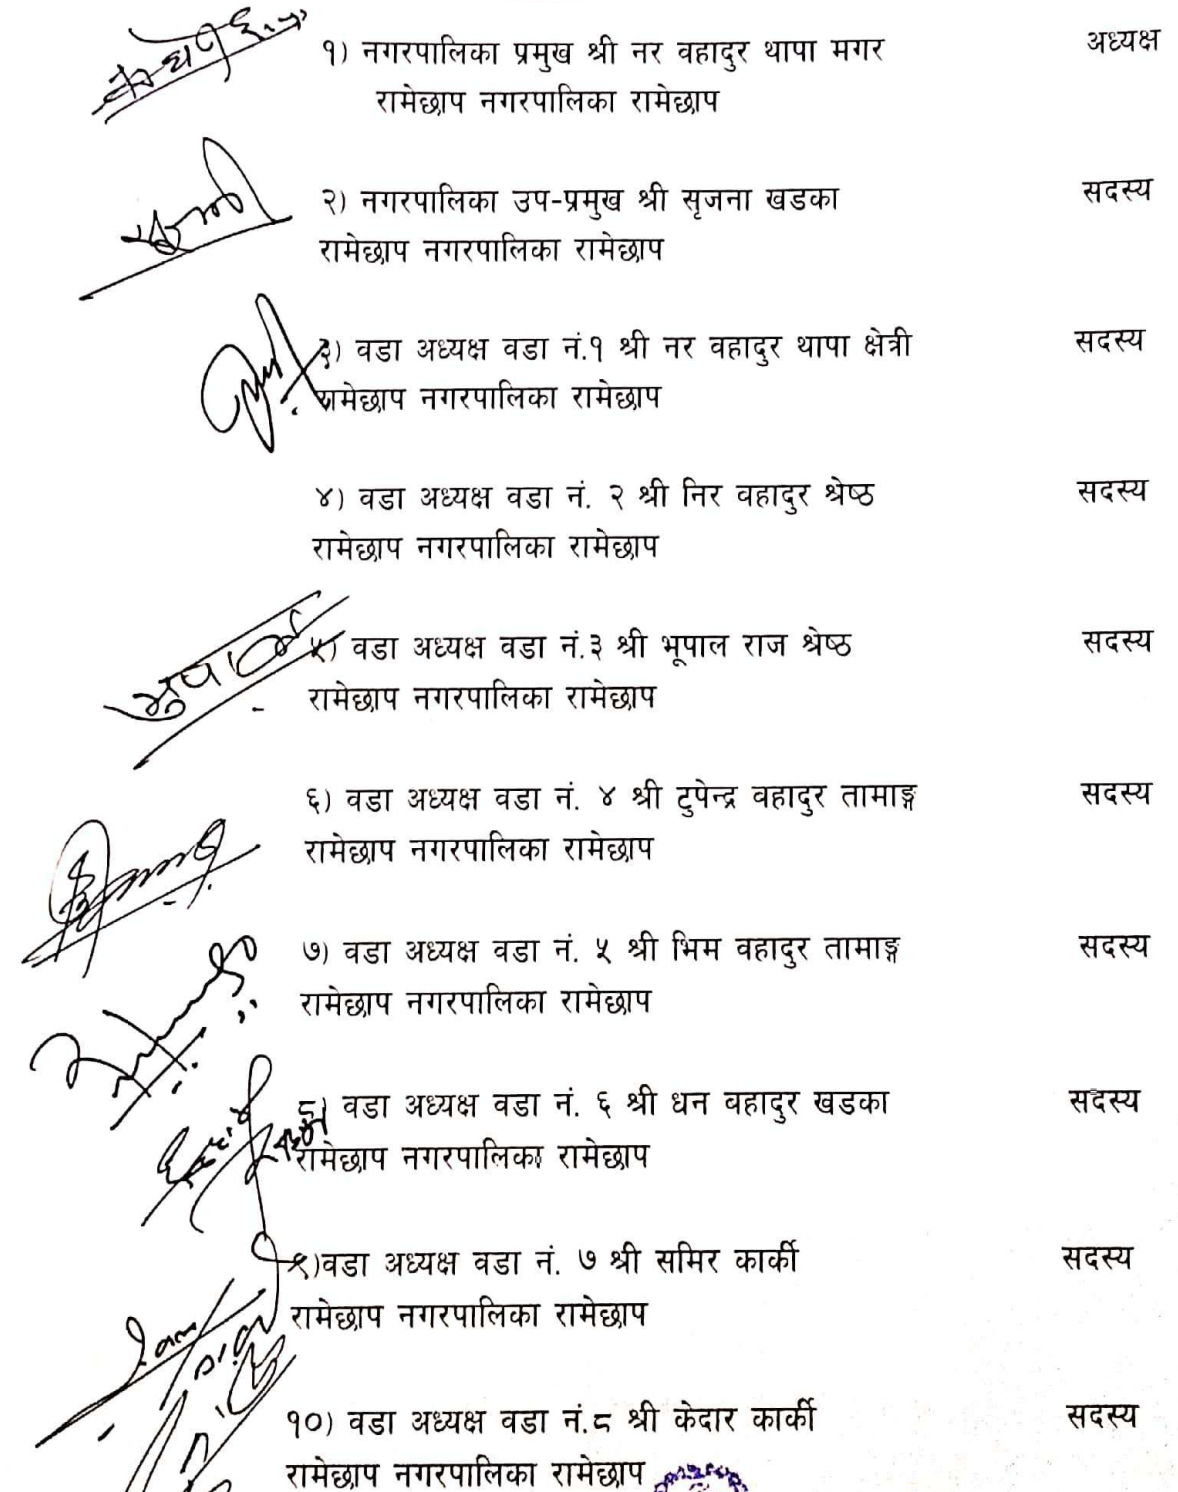 १) नगरपालिका प्रमुख श्री नर वहादुर थापा मगर अध्यक्ष
रामेछाप नगरपालिका रामेछाप
२) नगरपालिका उप-प्रमुख श्री सृजना खडका सदस्य
रामेछाप नगरपालिका रामेछाप
३) वडा अध्यक्ष वडा नं.१ श्री नर वहादुर थापा क्षेत्री सदस्य
रामेछाप नगरपालिका रामेछाप
४) वडा अध्यक्ष वडा नं. २ श्री निर वहादुर श्रेष्ठ सदस्य
रामेछाप नगरपालिका रामेछाप
५) वडा अध्यक्ष वडा नं.३ श्री भूपाल राज श्रेष्ठ सदस्य
रामेछाप नगरपालिका रामेछाप
६) वडा अध्यक्ष वडा नं. ४ श्री टुपेन्द्र वहादुर तामाङ्ग सदस्य
रामेछाप नगरपालिका रामेछाप
७) वडा अध्यक्ष वडा नं. ५ श्री भिम वहादुर तामाङ्ग सदस्य
रामेछाप नगरपालिका रामेछाप
८) वडा अध्यक्ष वडा नं. ६ श्री धन बहादुर खडका सदस्य
रामेछाप नगरपालिका रामेछाप
९)वडा अध्यक्ष वडा नं. ७ श्री समिर कार्की सदस्य
रामेछाप नगरपालिका रामेछाप
१०) वडा अध्यक्ष वडा नं.८ श्री केदार कार्की सदस्य
रामेछाप नगरपालिका रामेछाप